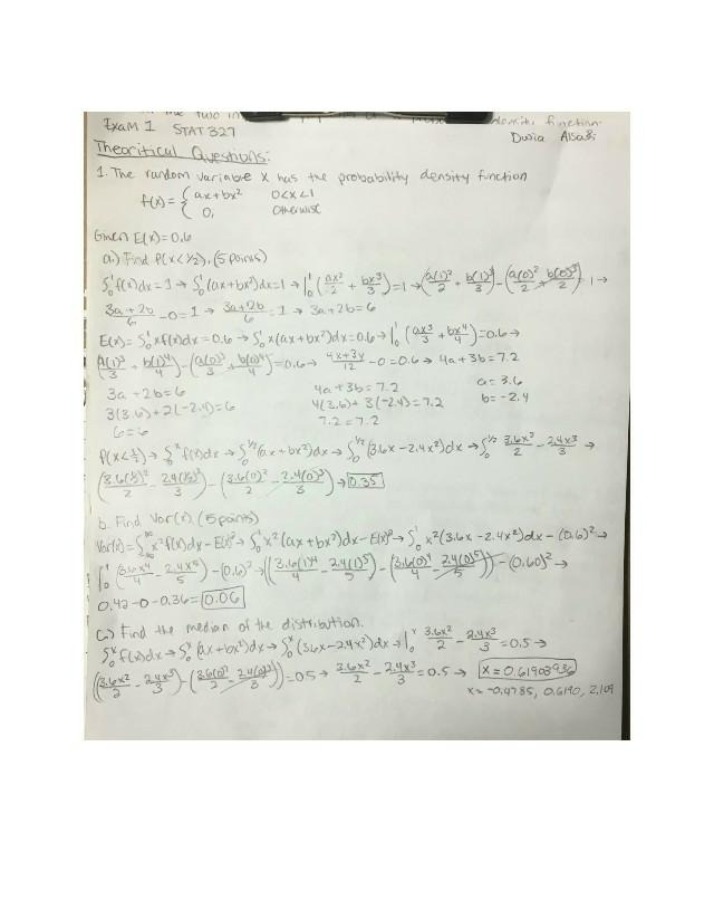 two in
Exam 1 STAT 327
density function
Theoritical Questions:
1. The random variable X has the probability density function
f(x) = { ax+bx² 0<x<1
0, Otherwise
Given E(x)=0.6
a.) Find P(x<½). (5 points)
∫₀¹ f(x)dx = 1 → ∫₀¹ (ax+bx²)dx=1 → |₀¹ (ax²/2 + bx³/3)=1 → (a(1)²/2 + b(1)³/3) - (a(0)²/2 + b(0)³/2) = 1 →
3a+2b/6 - 0 = 1 → 3a+2b/6 = 1 → 3a+2b=6
E(x)= ∫₀¹ xf(x)dx = 0.6 → ∫₀¹ x(ax+bx²)dx=0.6 → |₀¹ (ax³/3 + bx⁴/4)=0.6 →
(A(1)³/3 + b(1)⁴/4) - (a(0)³/3 + b(0)⁴/4) = 0.6 → 4x+3y/12 - 0 = 0.6 → 4a+3b=7.2
3a+2b=6 4a+3b=7.2 a=3.6
3(3.6)+2(-2.4)=6 4(3.6)+3(-2.4)=7.2 b=-2.4
6=6 7.2=7.2
P(x<½) → ∫₀ˣ f(x)dx → ∫₀^½ (ax+bx²)dx → ∫₀^½ (3.6x-2.4x²)dx → ∫₀^½ 3.6x²/2 - 2.4x³/3 →
(3.6(½)²/2 - 2.4(½)³/3) - (3.6(0)²/2 - 2.4(0)³/3) → 0.35
b. Find Var(x). (5 points)
Var(x) = ∫ x² f(x)dx - E(x)² → ∫₀¹ x²(ax+bx²)dx - E(x)² → ∫₀¹ x²(3.6x-2.4x²)dx - (0.6)² →
|₀¹ (3.6x⁴/4 - 2.4x⁵/5) - (0.6)² → ((3.6(1)⁴/4 - 2.4(1)⁵/5) - (3.6(0)⁴/4 - 2.4(0)⁵/5)) - (0.60)² →
0.42-0-0.36= 0.06
c.) Find the median of the distribution.
∫₀ˣ f(x)dx → ∫₀ˣ (ax+bx²)dx → ∫₀ˣ (3.6x-2.4x²)dx → |₀ˣ 3.6x²/2 - 2.4x³/3 = 0.5 →
((3.6x²/2 - 2.4x³/3) - (3.6(0)²/2 - 2.4(0)³/3)) = 0.5 → 3.6x²/2 - 2.4x³/3 = 0.5 →
x = -0.4785, 0.6190, 2.109